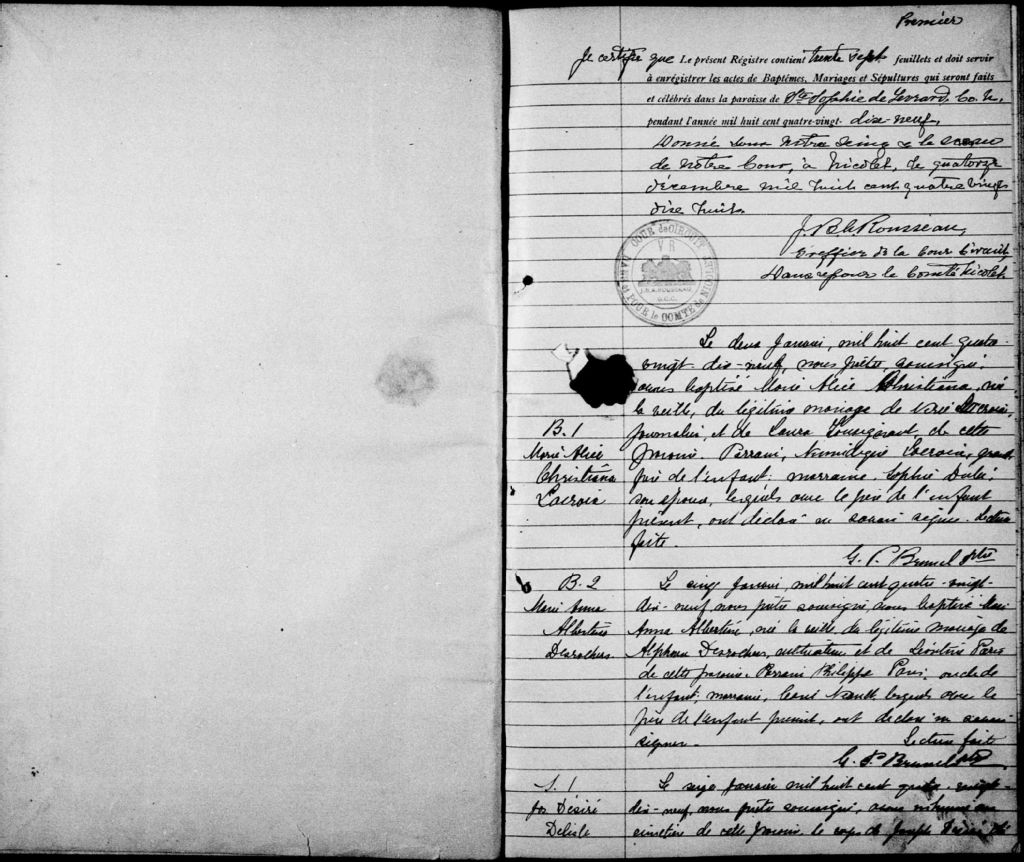 Premier
Je certifie que Le présent Régistre contient trente sept feuillets et doit servir
à enrégistrer les actes de Baptêmes, Mariages et Sépultures qui seront faits
et célébrés dans la paroisse de Ste Sophie de Levrard, Co. N.
pendant l'année mil huit cent quatre-vingt- dixe-neuf,
Donné sous notre seing & le sceau
de notre Cour, à Nicolet, le quatorze
décembre mil huit cent quatre vingt
dixe huit.
J. B. Rousseau,
Greffier de la Cour Circuit,
Dans & pour le Comté Nicolet
COUR de CIRCUIT
V R
DANS et POUR le COMTÉ de NICOLET
Le deux Janvier, mil huit cent quatre-
vingt-dix-neuf, nous prêtre soussigné,
avons baptisé Marie Alice Christiana, née
la veille, du légitime mariage de Lacroix,
B. 1
Marie Alice
Christiana
Lacroix
journalier, et de Laura Tousignant, de cette
paroisse. Parrain, Lacroix, grand
père de l'enfant; marraine, Sophie Dubé,
son épouse, lesquels avec le père de l'enfant
présent, ont déclaré ne savoir signer. Lecture
faite.
G. P. Brunel Ptre
B. 2
Marie Anna
Albertine
Desrochers
Le cinq Janvier, mil huit cent quatre-vingt-
dix-neuf, nous prêtre soussigné, avons baptisé Marie
Anna Albertine, née la veille, du légitime mariage de
Alphonse Desrochers, cultivateur, et de Léontine Paris
de cette paroisse. Parrain Philippe Paris, oncle de
l'enfant; marraine, lesquels avec le
père de l'enfant présent, ont déclaré ne savoir
signer. Lecture faite
G. P. Brunel Ptre
S. 1
Jos Désiré
Delisle
Le seize Janvier mil huit cent quatre-vingt-
dix-neuf, nous prêtre soussigné, avons inhumé au
cimetière de cette paroisse, le corps de Joseph Désiré